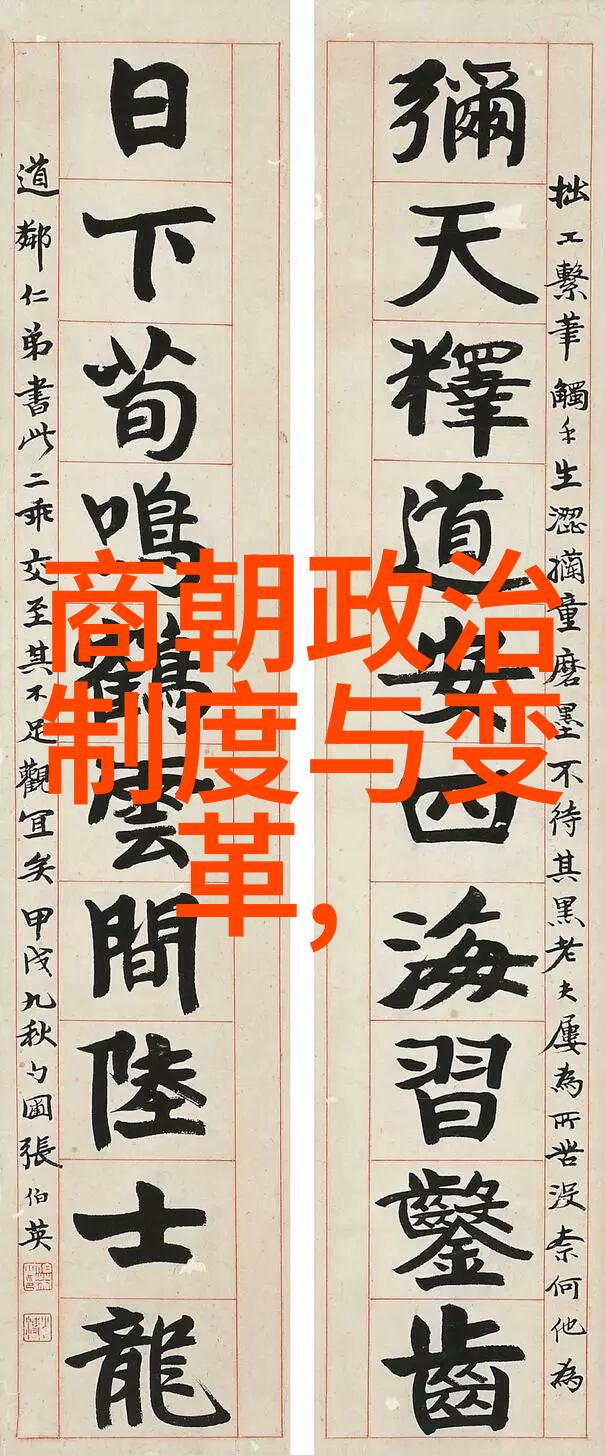 商朝政治
制度与变
革,
拙工繫筆觸手生澀童磨墨不待其黑老夫屢為所苦没柰何他為
彌天釋道安四海習鑿齒
日下荀鳴鶴雲間陸士龍
道鄰仁弟書此二乖交至其不足觀宜矣甲戌九秋勺圃張伯英